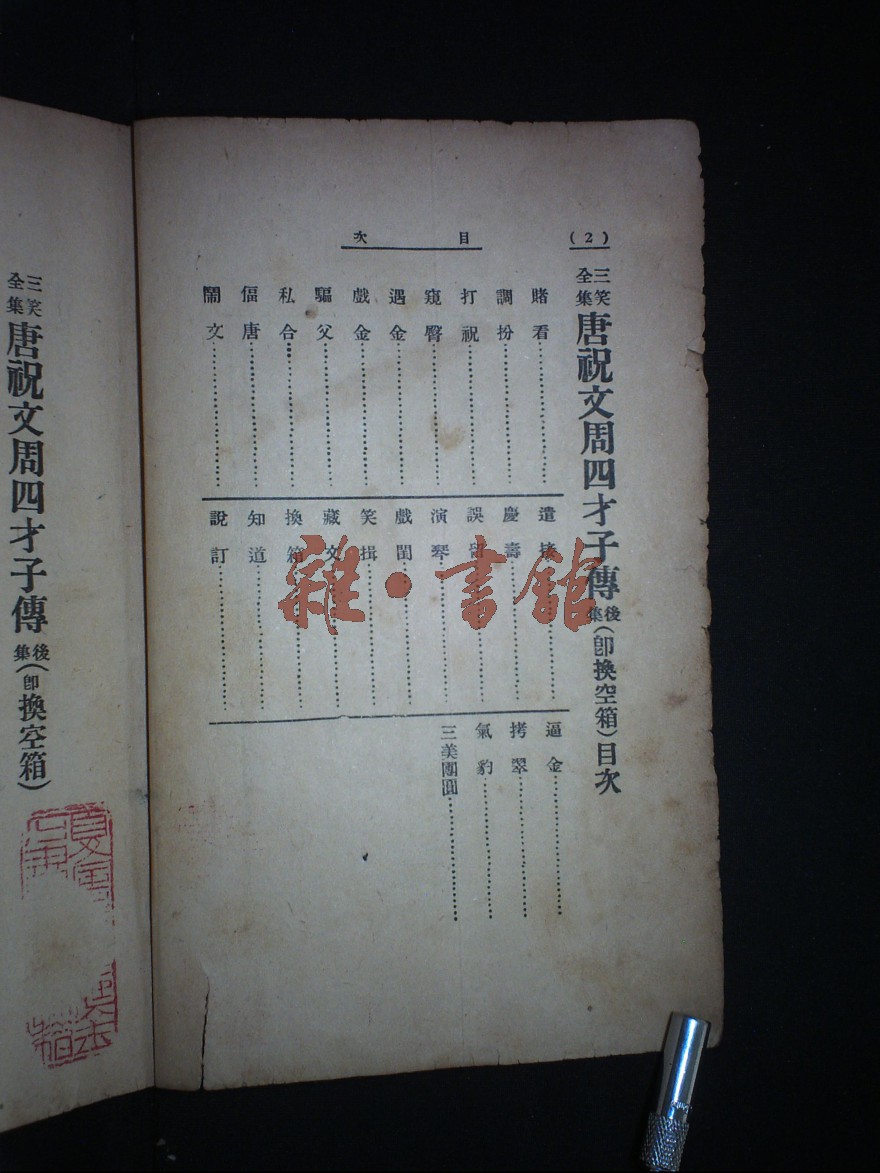 (2)
目次
三笑全集 唐祝文周四才子傳 後集(卽換空箱)目次
賭看
調扮
打祝
窺臀
遇金
戲金
騙父
私合
偪唐
鬧文
遣
慶壽
誤
演琴
戲閨
笑揖
藏文
換箱
知道
說訂
逼金
拷翠
氣豹
三美團圓
三笑全集 唐祝文周四才子傳 後集(卽換空箱)
雜·書館